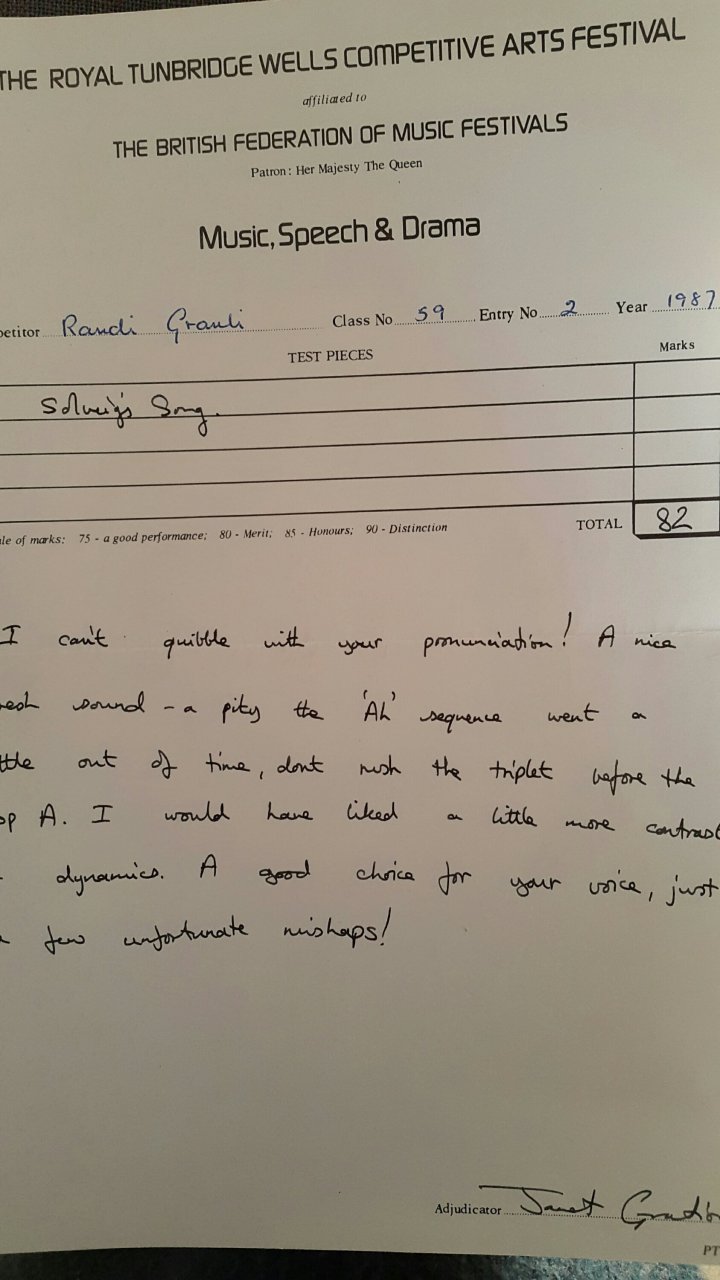 THE ROYAL TUNBRIDGE WELLS COMPETITIVE ARTS FESTIVAL
affiliated to
THE BRITISH FEDERATION OF MUSIC FESTIVALS
Patron: Her Majesty The Queen
Music, Speech & Drama
petitor Randi Grauli Class No 59 Entry No 2 Year 1987
TEST PIECES Marks
Solveig's Song.
le of marks: 75 - a good performance; 80 - Merit; 85 - Honours; 90 - Distinction TOTAL 82
I can't quibble with your pronunciation! A nice
resh sound - a pity the 'Ah' sequence went a
ttle out of time, dont rush the triplet before the
op A. I would have liked a little more contrast
dynamics. A good choice for your voice, just
a few unfortunate mishaps!
Adjudicator Janet
PT